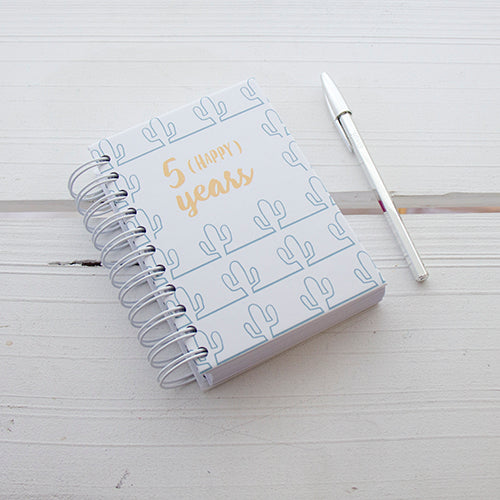 5 (HAPPY)
years